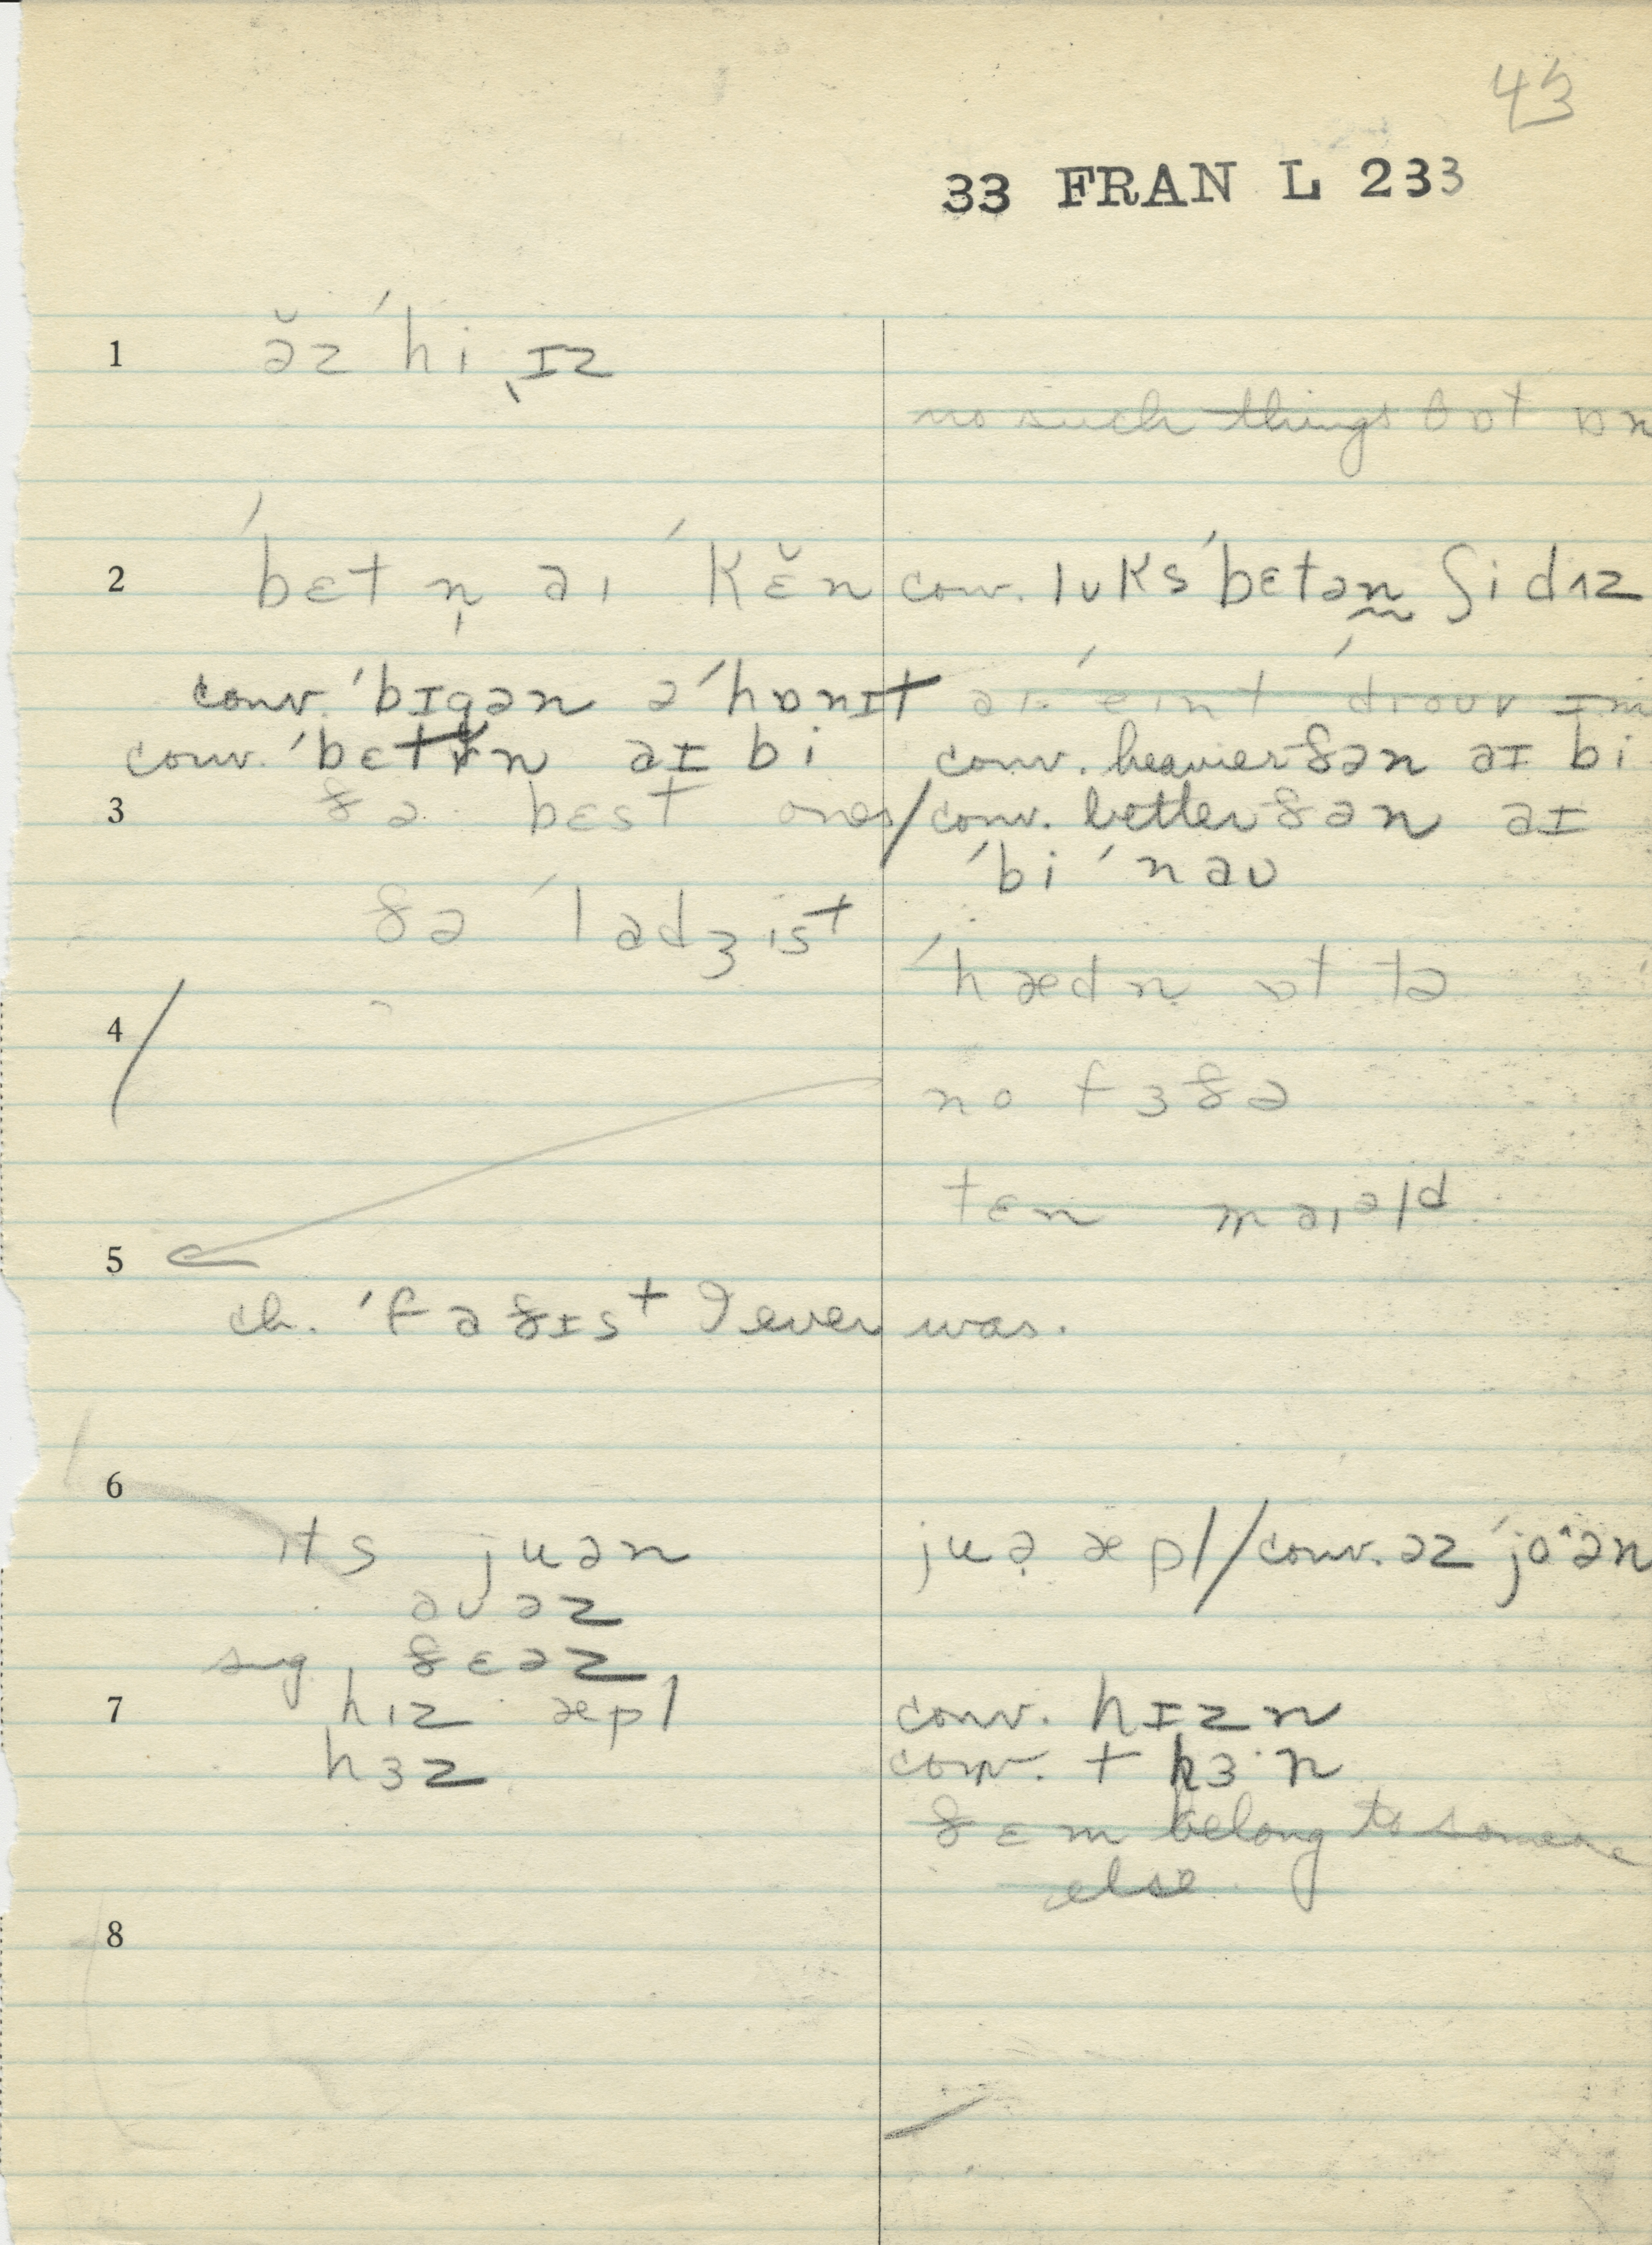 43
33 FRAN L 233
1 ə̆z ˈhi ˌɪz
no such things
2 ˈbɛt n̩ aɪ ˈkɛ̆n conv. lʊks ˈbɛtən ʃi dɪz
conv. ˈbɪgən ə ˈhɒnɪt
conv. ˈbɛtn aɪ bi conv. heavier ðən aɪ bi
3 ðə bɛst ones / conv. better ðən aɪ
ˈbi ˈnaʊ
ðə ˈladʒɪst
ˈhædn ɒt tə
4
no fɜðə
tɛn maɪəld
5
ch. ˈfaðɪst I ever was.
6
ɪts juən juə æpl // conv. əz ˈjoən
aʊəz
sug. ðɛəz
7 hɪz æpl conv. hɪzn
hɜz conv. + hɜn
ðɛm belong to someone
else
8